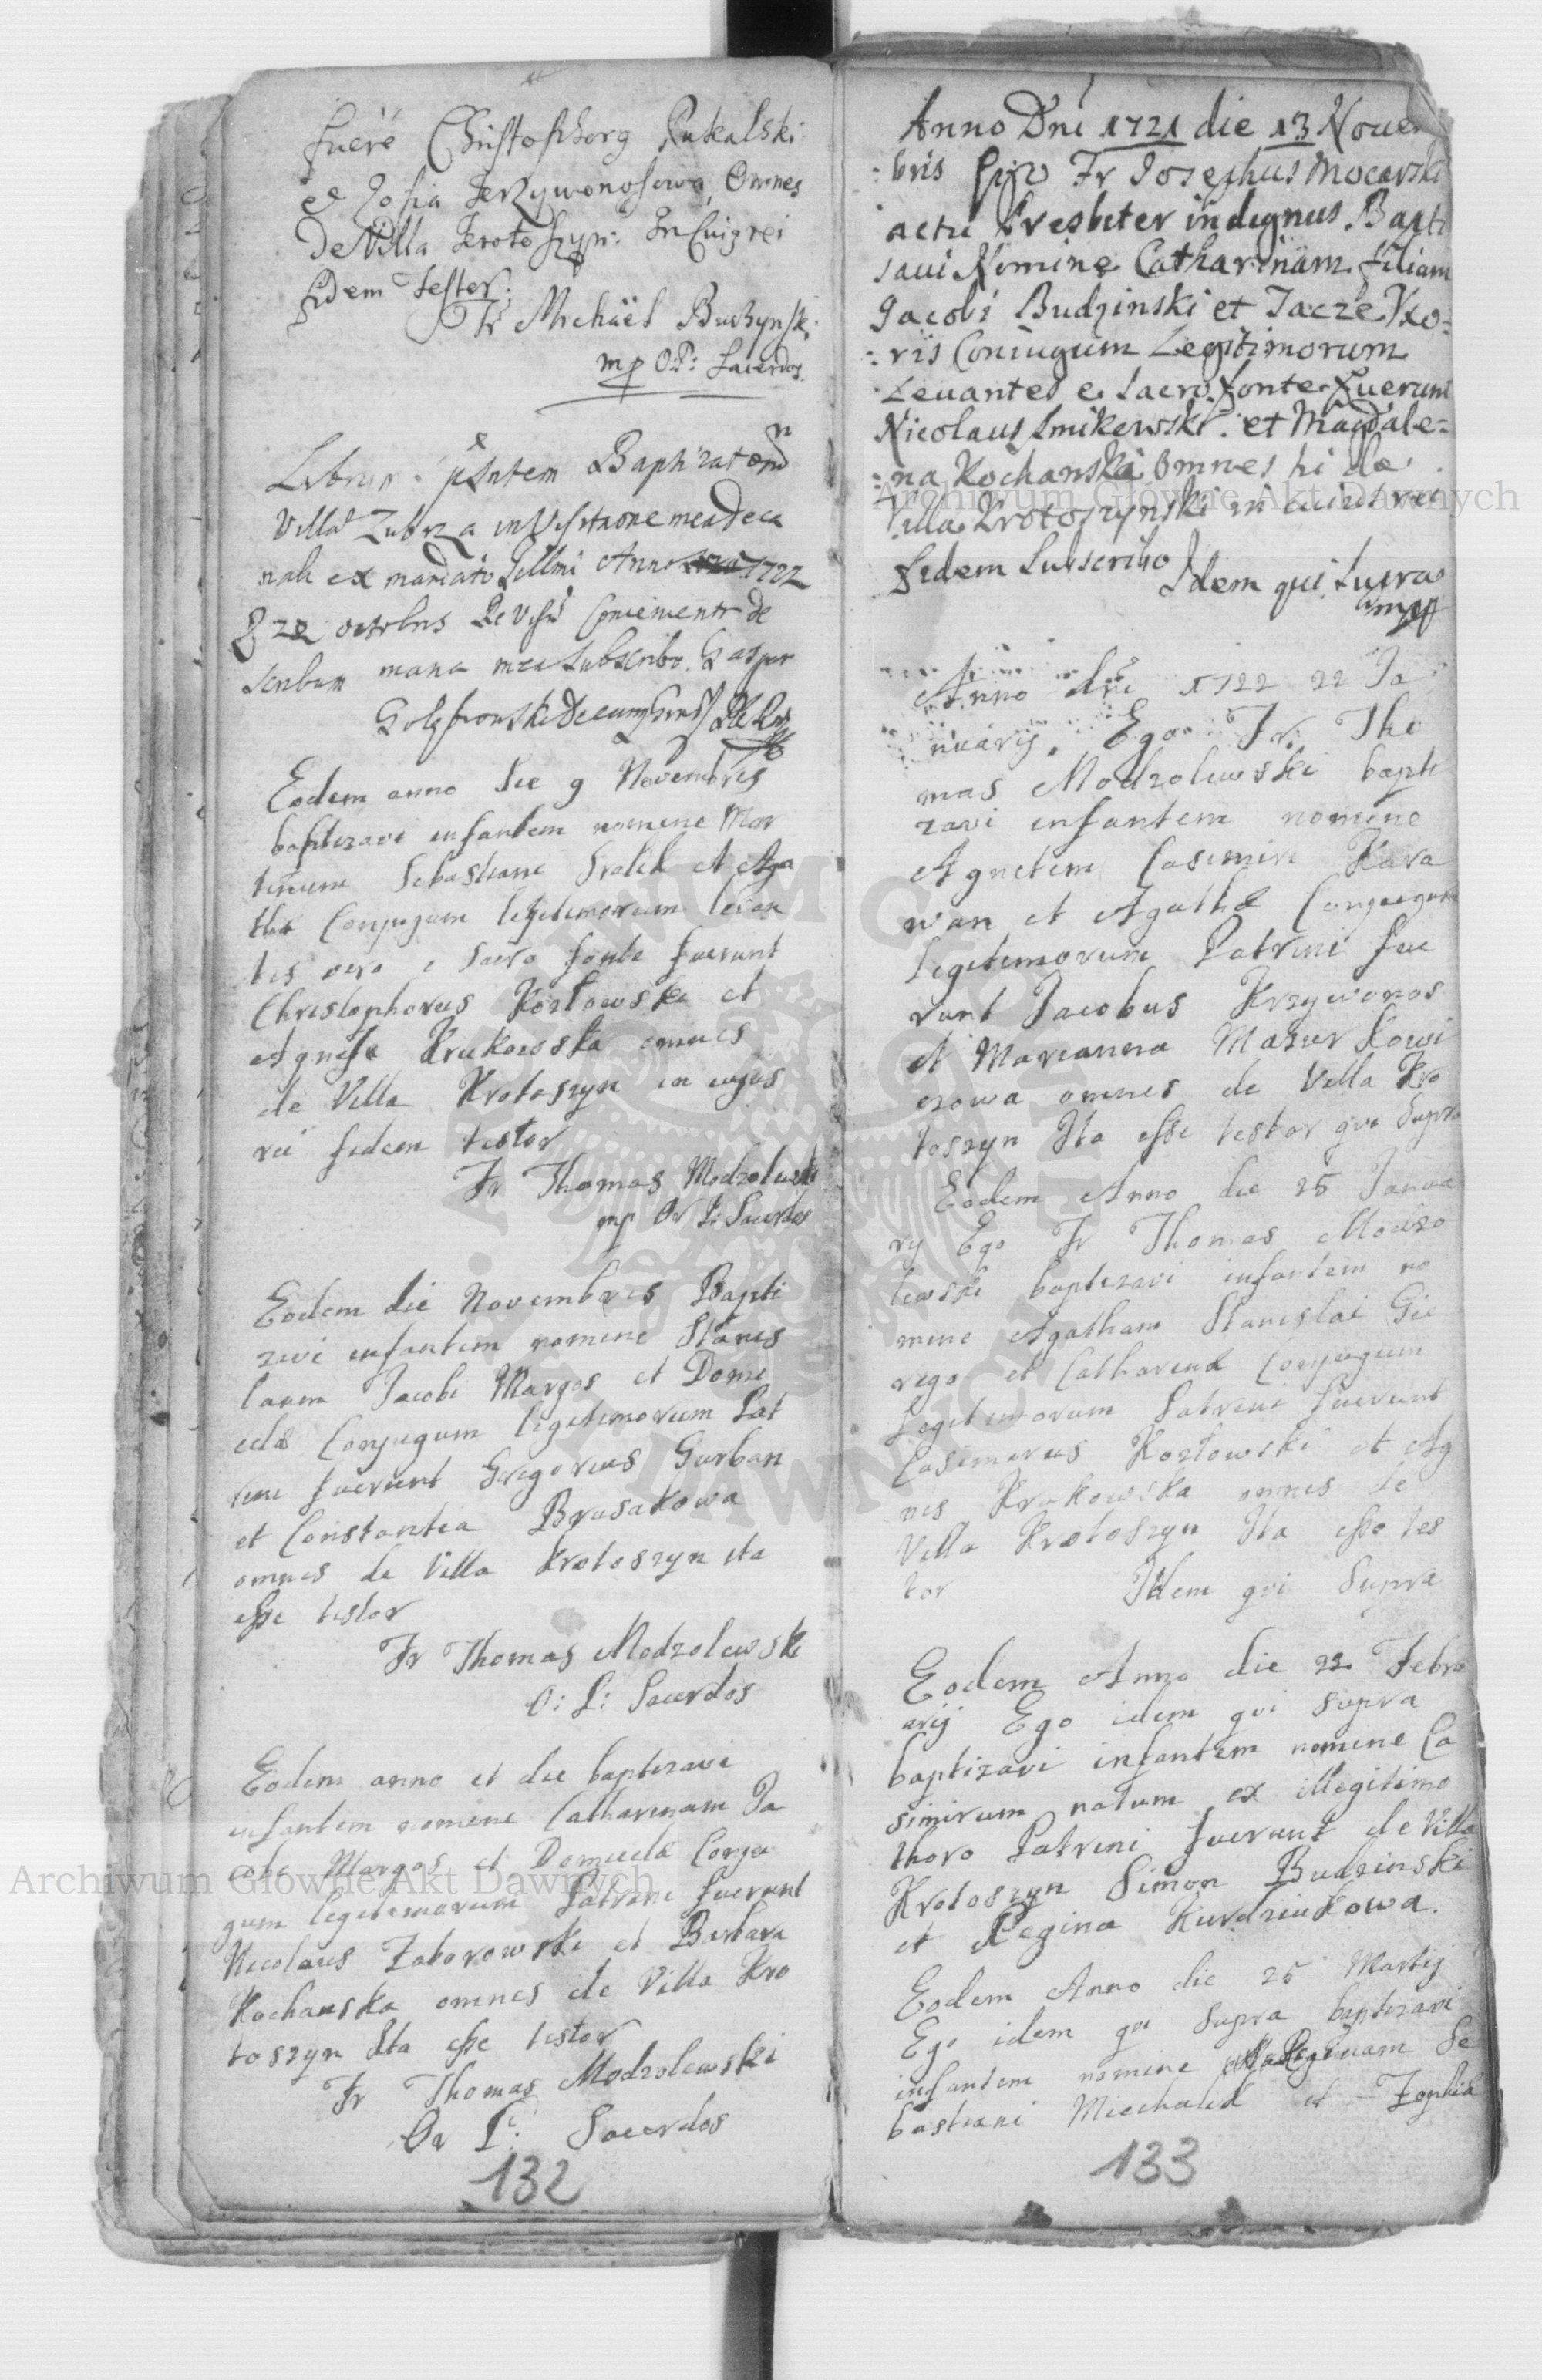 fuere Christophorg Pukalski
et Zofia Krzywonosowa Omnes
De Villa Krotoszyn: In Cuig rei
fidem testor:
Fr Michael Buczynsk
mp O:P: Sacerdos.
Librum pñtem Baptizatorum
Villae Zubrza in Visitatione mea Deca
nali ex mandato Illmi Anno 1722
22 octobris Revisũ Convenienter de
scribum manu mea Subscribo. Gaspar
Eodem anno die 9 Novembris
baptizavi infantem nomine Mar
tinum Sebastiani Fralik et Aga
thæ Conjugum legitimorum levan
tes vero e sacro fonte fuerunt
Christophorus Kozłowski et
Agnesa Krukowska omnes
de Villa Krotoszyn in cujus
rei fidem testor
Fr Thomas Modzolewski
mp Or P: Sacerdos
Eodem die Novembris Bapti
zavi infantem nomine Stanis
laum Jacobi Margos et Domi
celæ Conjugum legitimorum Pat
rini fuerunt Gregorius Gurban
et Constantia Brusakowa
omnes de Villa Krotoszyn ita
esse testor
Fr Thomas Modzolewski
O: P: Sacerdos
Eodem anno et die baptizavi
infantem nomine Catharinam Ja
cobi Margos et Domicelæ Conju
gum legitimorum Patrini fuerunt
Nicolaus Zaborowski et Barbara
Kochanska omnes de Villa Kro
toszyn Ita esse testor
Fr Thomas Modzolewski
Or P: Sacerdos
132
Anno Dni 1721 die 13 Novem
:bris Fr Josephus Mocarski
actu Presbiter indignus Bapti
saui Nomine Catharinam filiam
Jacobi Budzinski et Jacze Vxo=
:ris Coniugum Legitimorum
Levantes e sacro fonte Fuerunt
Nicolaus Smikowski et Magdale=
:na Kochanska Omnes hi de
Villa Krotoszynski in cuius rei
fidem Subscribo
Idem qui Supra
mpp
Anno dni 1722 22 Ja
nuarij. Ego Fr. Tho
mas Modzolewski bapti
zavi infantem nomine
Agnetem Casimiri Kara
wan et Agathæ Conjugum
Legitimorum Patrini fue
runt Jacobus Krzywonos
et Marianna Mazurkowi
czowa omnes de Villa Kro
toszyn Ita esse testor qui Supra
Eodem Anno die 25 Janua
rij Ego Fr Thomas Modzo
lewski baptizavi infantem no
mine Agatham Stanislai Gie
rego et Catharinæ Conjugum
Legitimorum Patrini fuerunt
Casimirus Kozłowski et Ag
nes Krukowska omnes de
Villa Krotoszyn Ita esse tes
tor Idem qui Supra
Eodem Anno die 22 Febru
arij Ego idem qui supra
baptizavi infantem nomine Ca
simirum natum ex illegitimo
thoro Patrini fuerunt de Villa
Krotoszyn Simon Budzinski
et Regina Kurdziukowa.
Eodem Anno die 25 Martij
Ego idem qui Supra baptizavi
infantem nomine Reginam Se
bastiani Miechalik et Zophiæ
133
Archiwum Główne Akt Dawnych
Archiwum Główne Akt Dawnych